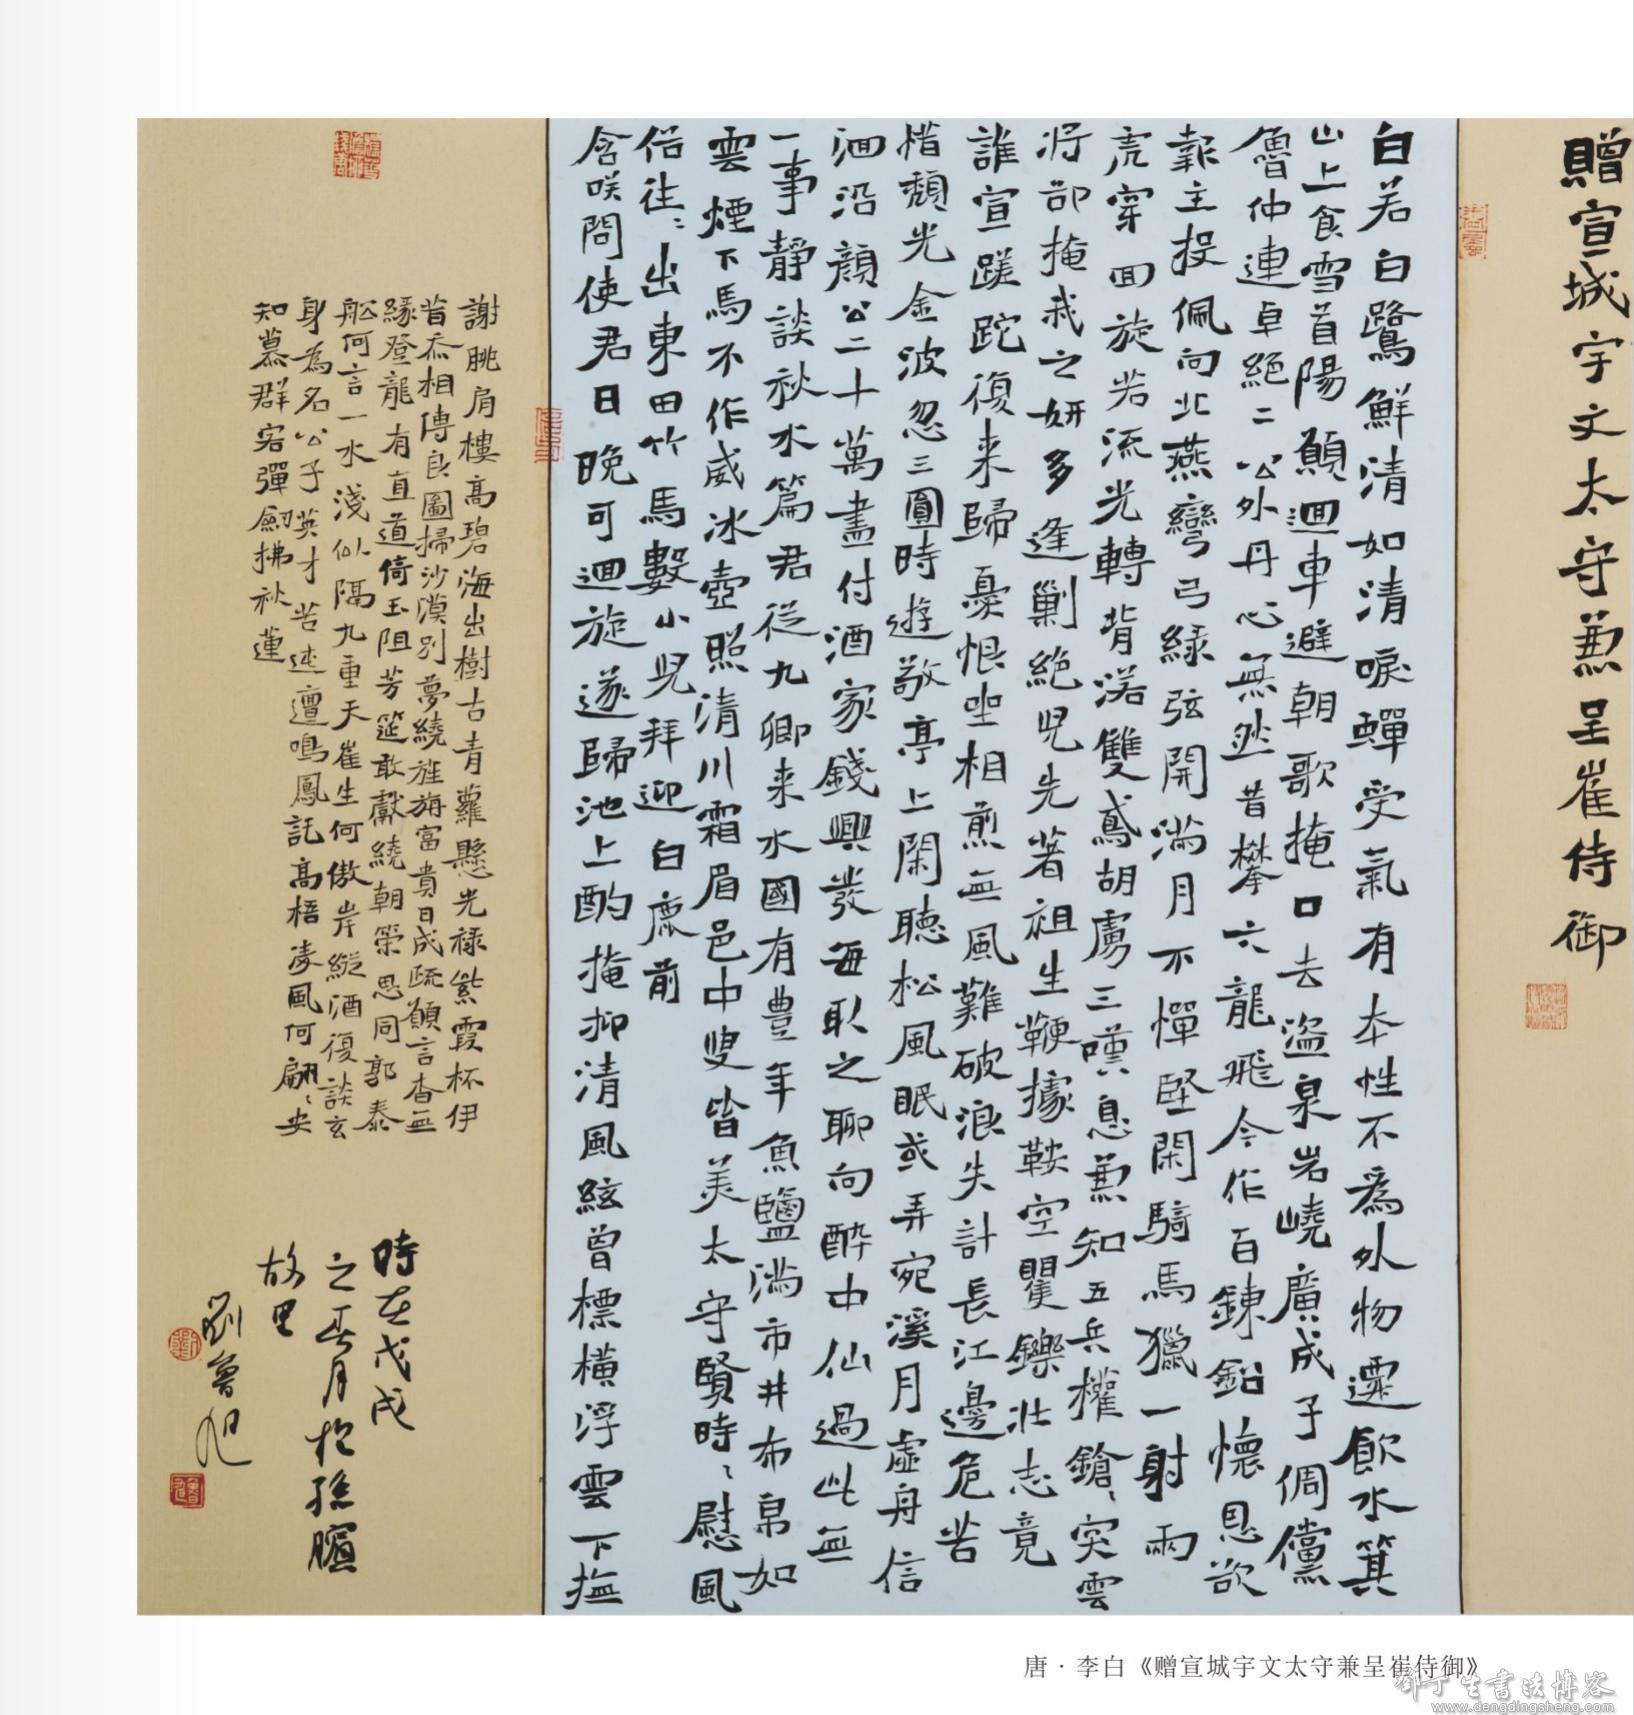 贈宣城宇文太守兼呈崔侍御
白若白鷺鮮清如清唳蟬受氣有本性不為外物遷飲水箕
山上食雪首陽顛迴車避朝歌掩口去盜泉岩嶢廣成子倜儻
魯仲連卓絕二公外丹心無然昔攀六龍飛今作百鍊鉛懷恩欲
報主投佩向北燕彎弓綠弦開滿月不憚堅閑騎馬獵一射兩
虎穿回旋若流光轉背落雙鳶胡虜三嘆息兼知五兵權鎗〻突雲
將卻掩我之妍多逢剿絕兒先著祖生鞭據鞍空矍鑠壯志竟
誰宣蹉跎復来歸憂恨坐相煎無風難破浪失計長江邊危苦
惜頹光金波忽三圓時遊敬亭上閑聽松風眠或弄宛溪月虛舟信
洄沿顏公二十萬盡付酒家錢興發每取之聊向醉中仙過此無
一事靜談秋水篇君從九卿来水國有豐年魚鹽滿市井布帛如
雲煙下馬不作威冰壺照清川霜眉邑中叟皆美太守賢時〻慰風
俗往〻出東田竹馬數小兒拜迎白鹿前
含咲問使君日晚可迴旋遂歸池上酌掩抑清風絃曾標橫浮雲下撫
謝朓肩樓高碧海出樹古青蘿懸光祿紫霞杯伊
昔忝相傳良圖掃沙漠別夢繞旌旃富貴日成疏願言杳無
緣登龍有直道倚玉阻芳筵敢獻繞朝策思同郭泰
船何言一水淺似隔九重天崔生何傲岸縱酒復談玄
身為名公子英才苦迍邅鳴鳳託高梧凌風何翩〻安
知慕群客彈劍拂秋蓮
時在戊戌
之春月於孫臏
故里
劉魯旭
唐·李白《赠宣城宇文太守兼呈崔侍御》
邓丁生書法博客
www.dengdingsheng.com